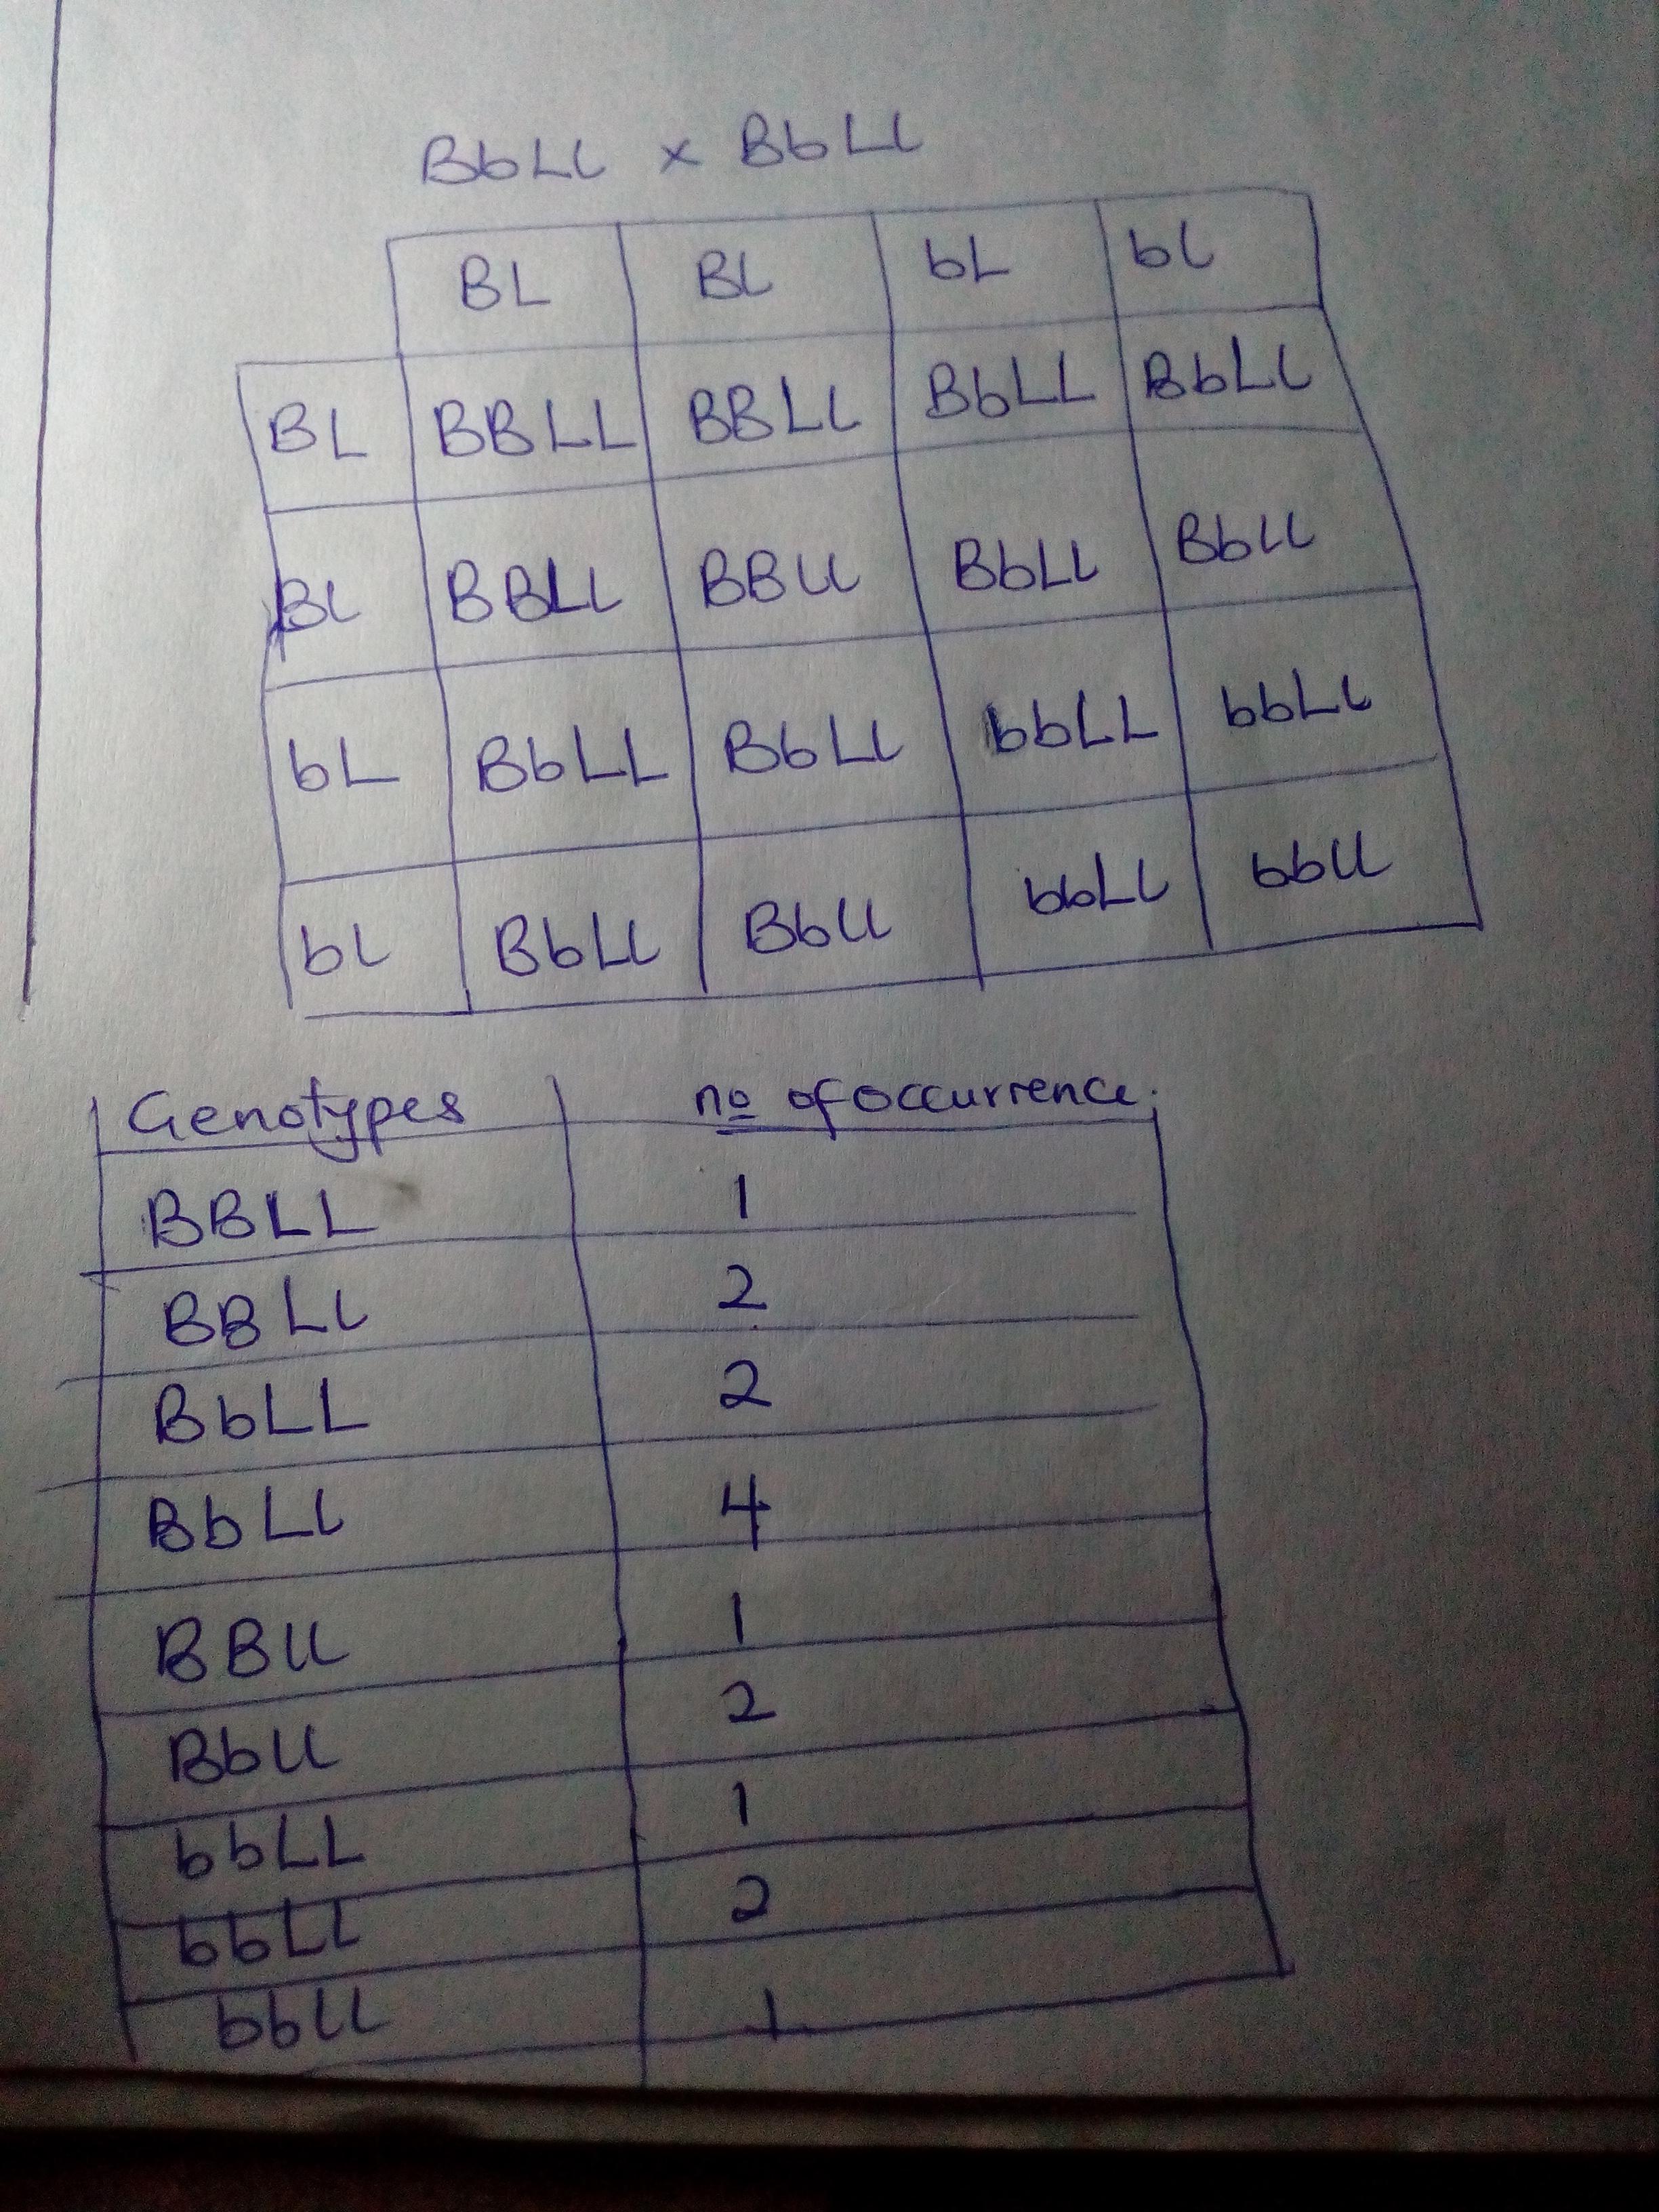 BbLl x BbLl
BL Bl bL bl
BL BBLL BBLl BbLL BbLl
Bl BBLl BBll BbLl Bbll
bL BbLL BbLl bbLL bbLl
bl BbLl Bbll bbLl bbll
Genotypes no of occurrence.
BBLL 1
BBLl 2
BbLL 2
BbLl 4
BBll 1
Bbll 2
bbLL 1
bbLl 2
bbll 1